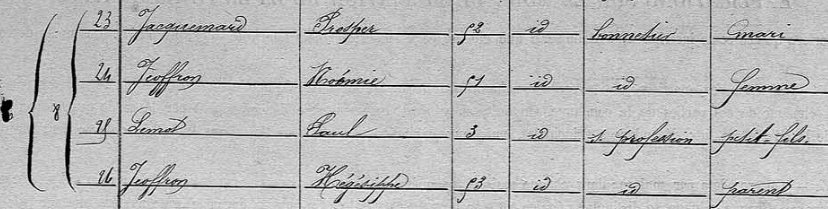 23 Jacquemard Prosper 52 id bonnetier mari
24 Jeoffroy Noémie 51 id id femme
8
25 Lemot Paul 3 id s. profession petit-fils.
26 Jeoffroy Hégésippe 53 id id parent